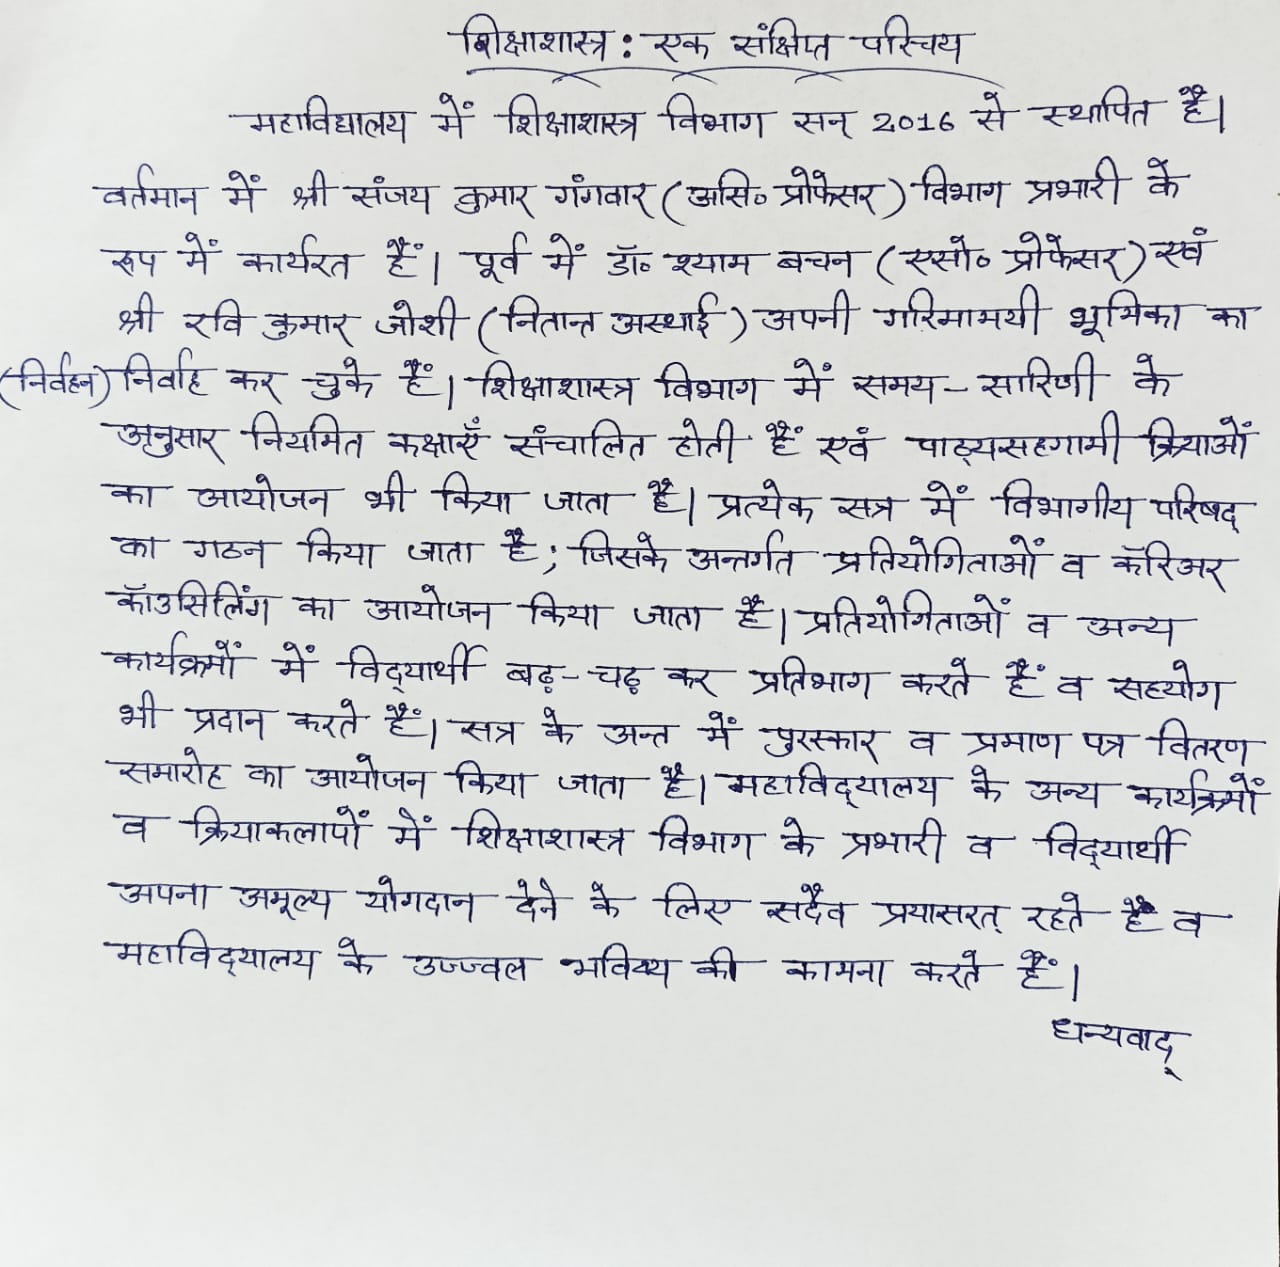 शिक्षाशास्त्र : एक संक्षिप्त परिचय
महाविद्यालय में शिक्षाशास्त्र विभाग सन् 2016 से स्थापित है।
वर्तमान में श्री संजय कुमार गंगवार (असि० प्रोफेसर) विभाग प्रभारी के
रूप में कार्यरत हैं। पूर्व में डॉ० श्याम बचन (एसो० प्रोफेसर) एवं
श्री रवि कुमार जोशी (नितान्त अस्थाई) अपनी गरिमामयी भूमिका का
(निर्वहन) निर्वाह कर चुके हैं। शिक्षाशास्त्र विभाग में समय-सारिणी के
अनुसार नियमित कक्षाएँ संचालित होती हैं एवं पाठ्यसहगामी क्रियाओं
का आयोजन भी किया जाता है। प्रत्येक सत्र में विभागीय परिषद्
का गठन किया जाता है; जिसके अन्तर्गत प्रतियोगिताओं व कॅरिअर
कॉउसिलिंग का आयोजन किया जाता है। प्रतियोगिताओं व अन्य
कार्यक्रमों में विद्यार्थी बढ़-चढ़ कर प्रतिभाग करते हैं व सहयोग
भी प्रदान करते हैं। सत्र के अन्त में पुरस्कार व प्रमाण पत्र वितरण
समारोह का आयोजन किया जाता है। महाविद्यालय के अन्य कार्यक्रमों
व क्रियाकलापों में शिक्षाशास्त्र विभाग के प्रभारी व विद्यार्थी
अपना अमूल्य योगदान देने के लिए सदैव प्रयासरत् रहते हैं व
महाविद्यालय के उज्ज्वल भविष्य की कामना करते हैं।
धन्यवाद्